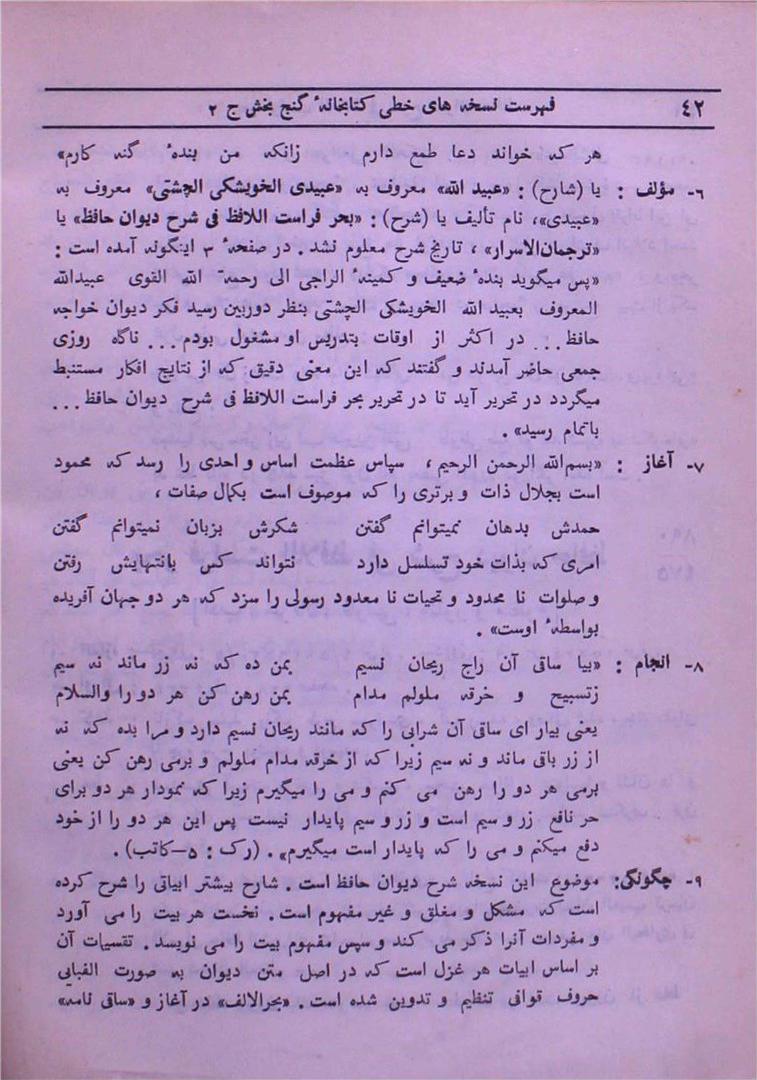 ٤٢ فهرست نسخه های خطی کتابخانهٔ گنج بخش ج ۲
هر که خواند دعا طمع دارم زانکه من بندهٔ گنه کارم»
٦- مؤلف : یا (شارح) : «عبید الله» معروف به «عبیدی الخویشکی الچشتی» معروف به
«عبیدی»، نام تألیف یا (شرح) : «بحر فراست اللافظ فی شرح دیوان حافظ» یا
«ترجمان الاسرار» ، تاریخ شرح معلوم نشد . در صفحهٔ ۳ اینگونه آمده است :
«پس میگوید بندهٔ ضعیف و کمینهٔ الراجی الی رحمة الله القوی عبیدالله
المعروف بعبید الله الخویشکی الچشتی بنظر دوربین رسید فکر دیوان خواجه
حافظ . . . در اکثر از اوقات بتدریس او مشغول بودم . . . ناگاه روزی
جمعی حاضر آمدند و گفتند که این معنی دقیق که از نتایج افکار مستنبط
میگردد در تحریر آید تا در تحریر بحر فراست اللافظ فی شرح دیوان حافظ . . .
باتمام رسید» .
۷- آغاز : «بسم الله الرحمن الرحیم ، سپاس عظمت اساس واحدی را رسد که محمود
است بجلال ذات و برتری را که موصوف است بکمال صفات ،
حمدش بدهان نمیتوانم گفتن شکرش بزبان نمیتوانم گفتن
امری که بذات خود تسلسل دارد نتواند کس بانتهایش رفتن
و صلوات نا محدود و تحیات نا معدود رسولی را سزد که هر دو جهان آفریده
بواسطهٔ اوست» .
۸- انجام : «بیا ساقی آن راح ریحان نسیم بمن ده که نه زر ماند نه سیم
زتسبیح و خرقه ملولم مدام بمن رهن کن هر دو را والسلام
یعنی بیار ای ساقی آن شرابی را که مانند ریحان نسیم دارد و مرا بده که نه
از زر باقی ماند و نه سیم زیرا که از خرقه مدام ملولم و برمی رهن کن یعنی
برمی هر دو را رهن می کنم و می را میگیرم زیرا که نمودار هر دو برای
حر نافع زر و سیم است و زر و سیم پایدار نیست پس این هر دو را از خود
دفع میکنم و می را که پایدار است میگیرم» . (رک : ۵-کاتب) .
۹- چگونگی: موضوع این نسخه شرح دیوان حافظ است . شارح بیشتر ابیاتی را شرح کرده
است که مشکل و مغلق و غیر مفهوم است . نخست هر بیت را می آورد
و مفردات آنرا ذکر می کند و سپس مفهوم بیت را می نویسد . تقسیمات آن
بر اساس ابیات هر غزل است که در اصل متن دیوان به صورت الفبائی
حروف قوافی تنظیم و تدوین شده است . «بحرالالف» در آغاز و «ساقی نامه»